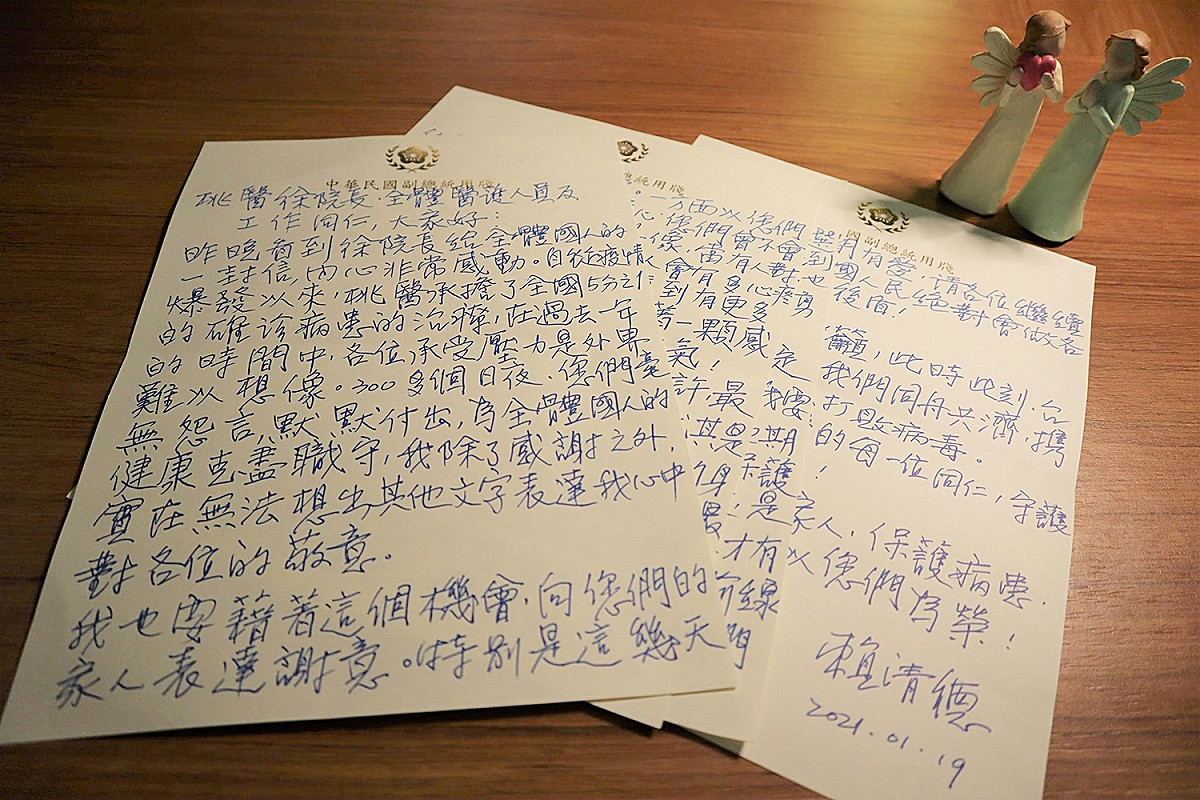 中華民國副總統用牋
桃醫徐院長、全體醫護人員及
工作同仁,大家好:
昨晚看到徐院長給全體國人的
一封信,內心非常感動。自從疫情
爆發以來,桃醫承擔了全國5分之1
的確診病患的治療,在過去一年
的時間中,各位承受壓力是外界
難以想像。300多個日夜,您們毫
無怨言,默默付出,為全體國人的
健康克盡職守,我除了感謝之外,
實在無法想出其他文字表達我心中
對各位的敬意。
我也要藉著這個機會,向您們的
家人表達謝意。特別是這幾天
統用牋
一方面以您們
您們會不會到
有人對
會有多心疼
到有更多
一顆感
氣!
許,最
其是
保護
國副總統用牋
與有榮,請各位繼續
國人民絕對會做各
後盾!
籲,此時此刻,台
我們同舟共濟,携
打敗病毒。
的每一位同仁,守護
!
是家人,保護病患,
以您們為榮!
賴清德
2021.01.19